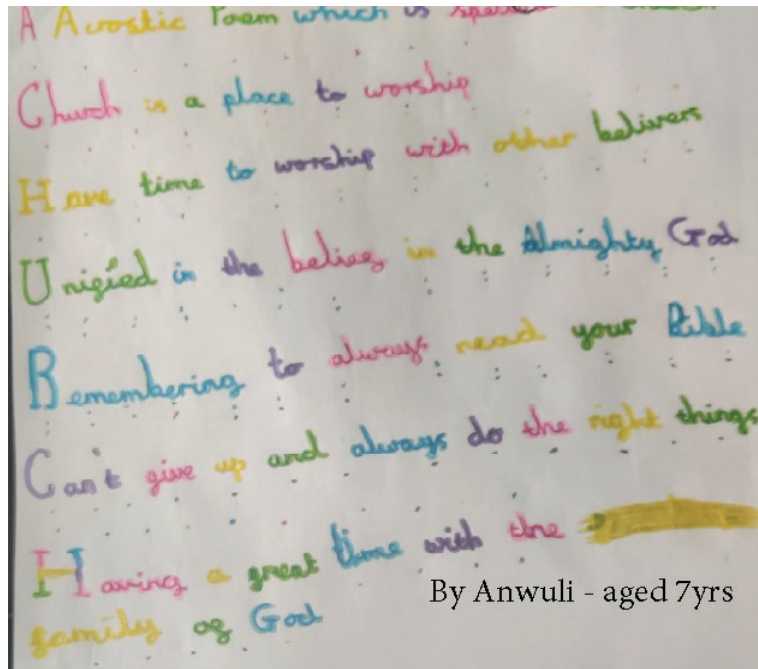 A Acrostic Poem which is
Church is a place to worship
Have time to worship with other belivers
Unified in the belief in the Almighty God
Remembering to always read your Bible
Can't give up and always do the right things
Having a great time with the
family of God
By Anwuli - aged 7yrs